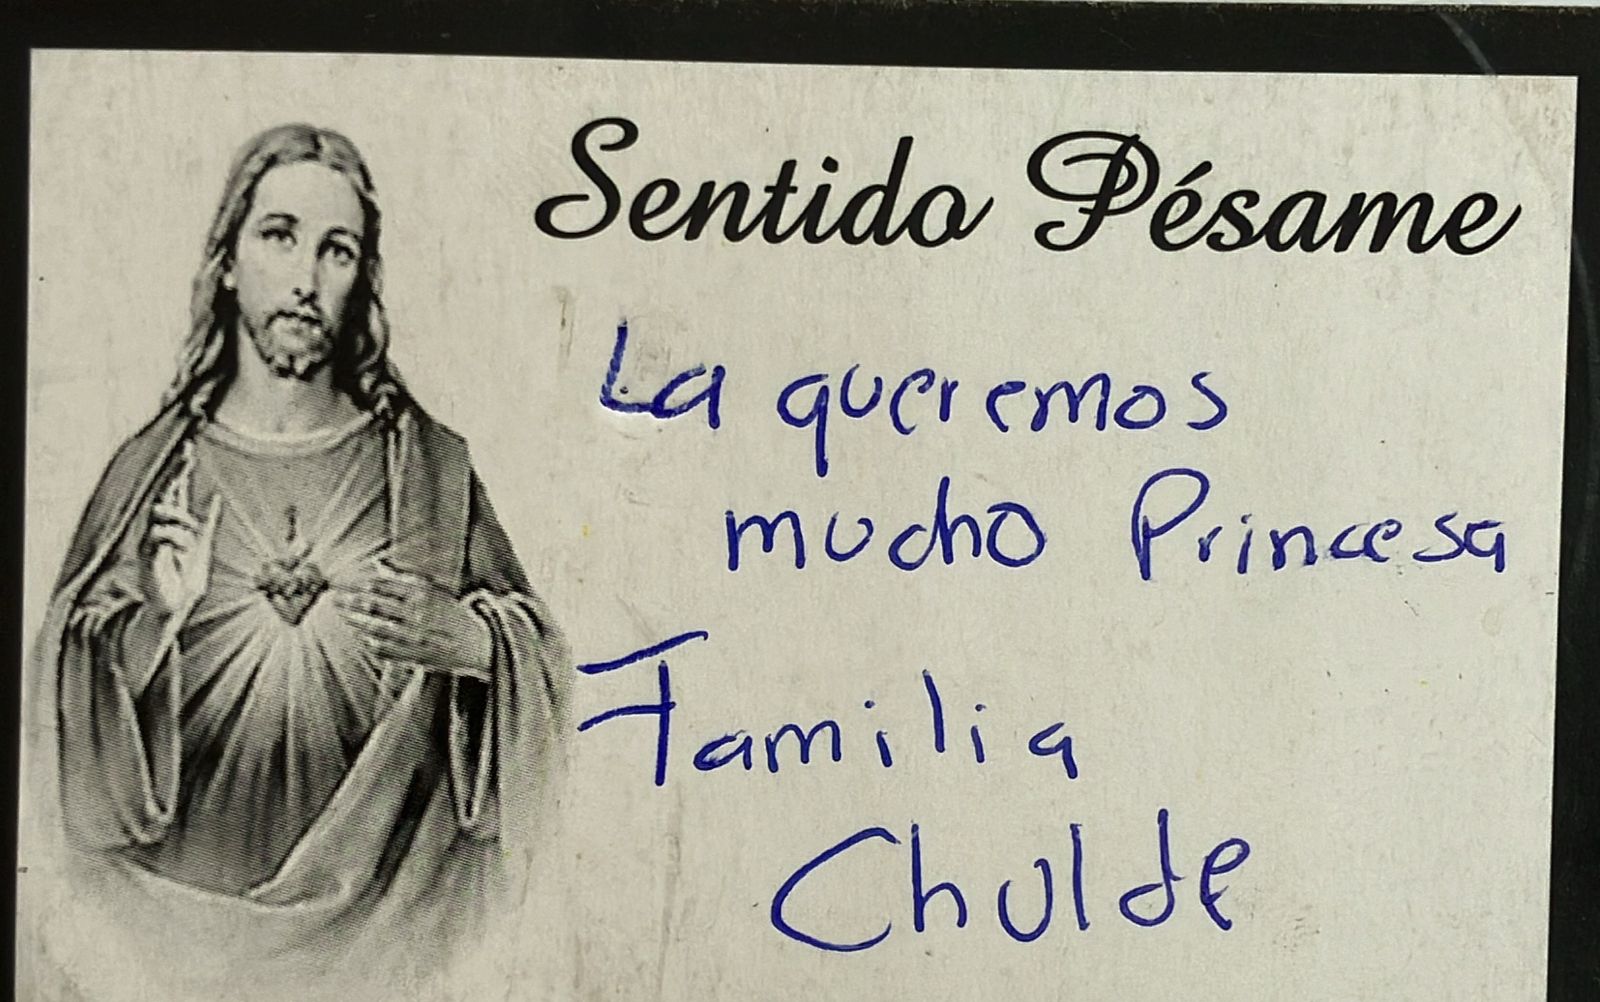 Sentido Pésame
La queremos
mucho Princesa
Familia
Chulde